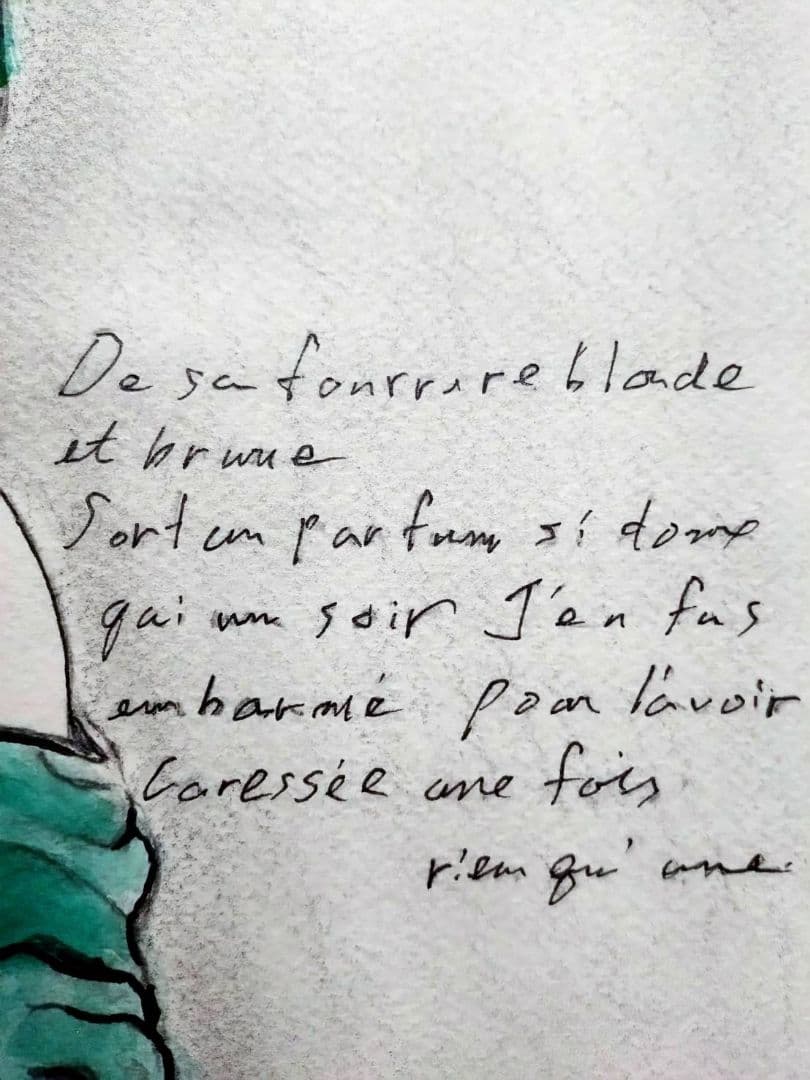 De sa fourrure blonde
et brune
Sort un parfum si doux
qui un soir J'en fus
embarmé pour l'avoir
Caressée une fois
rien qu'une